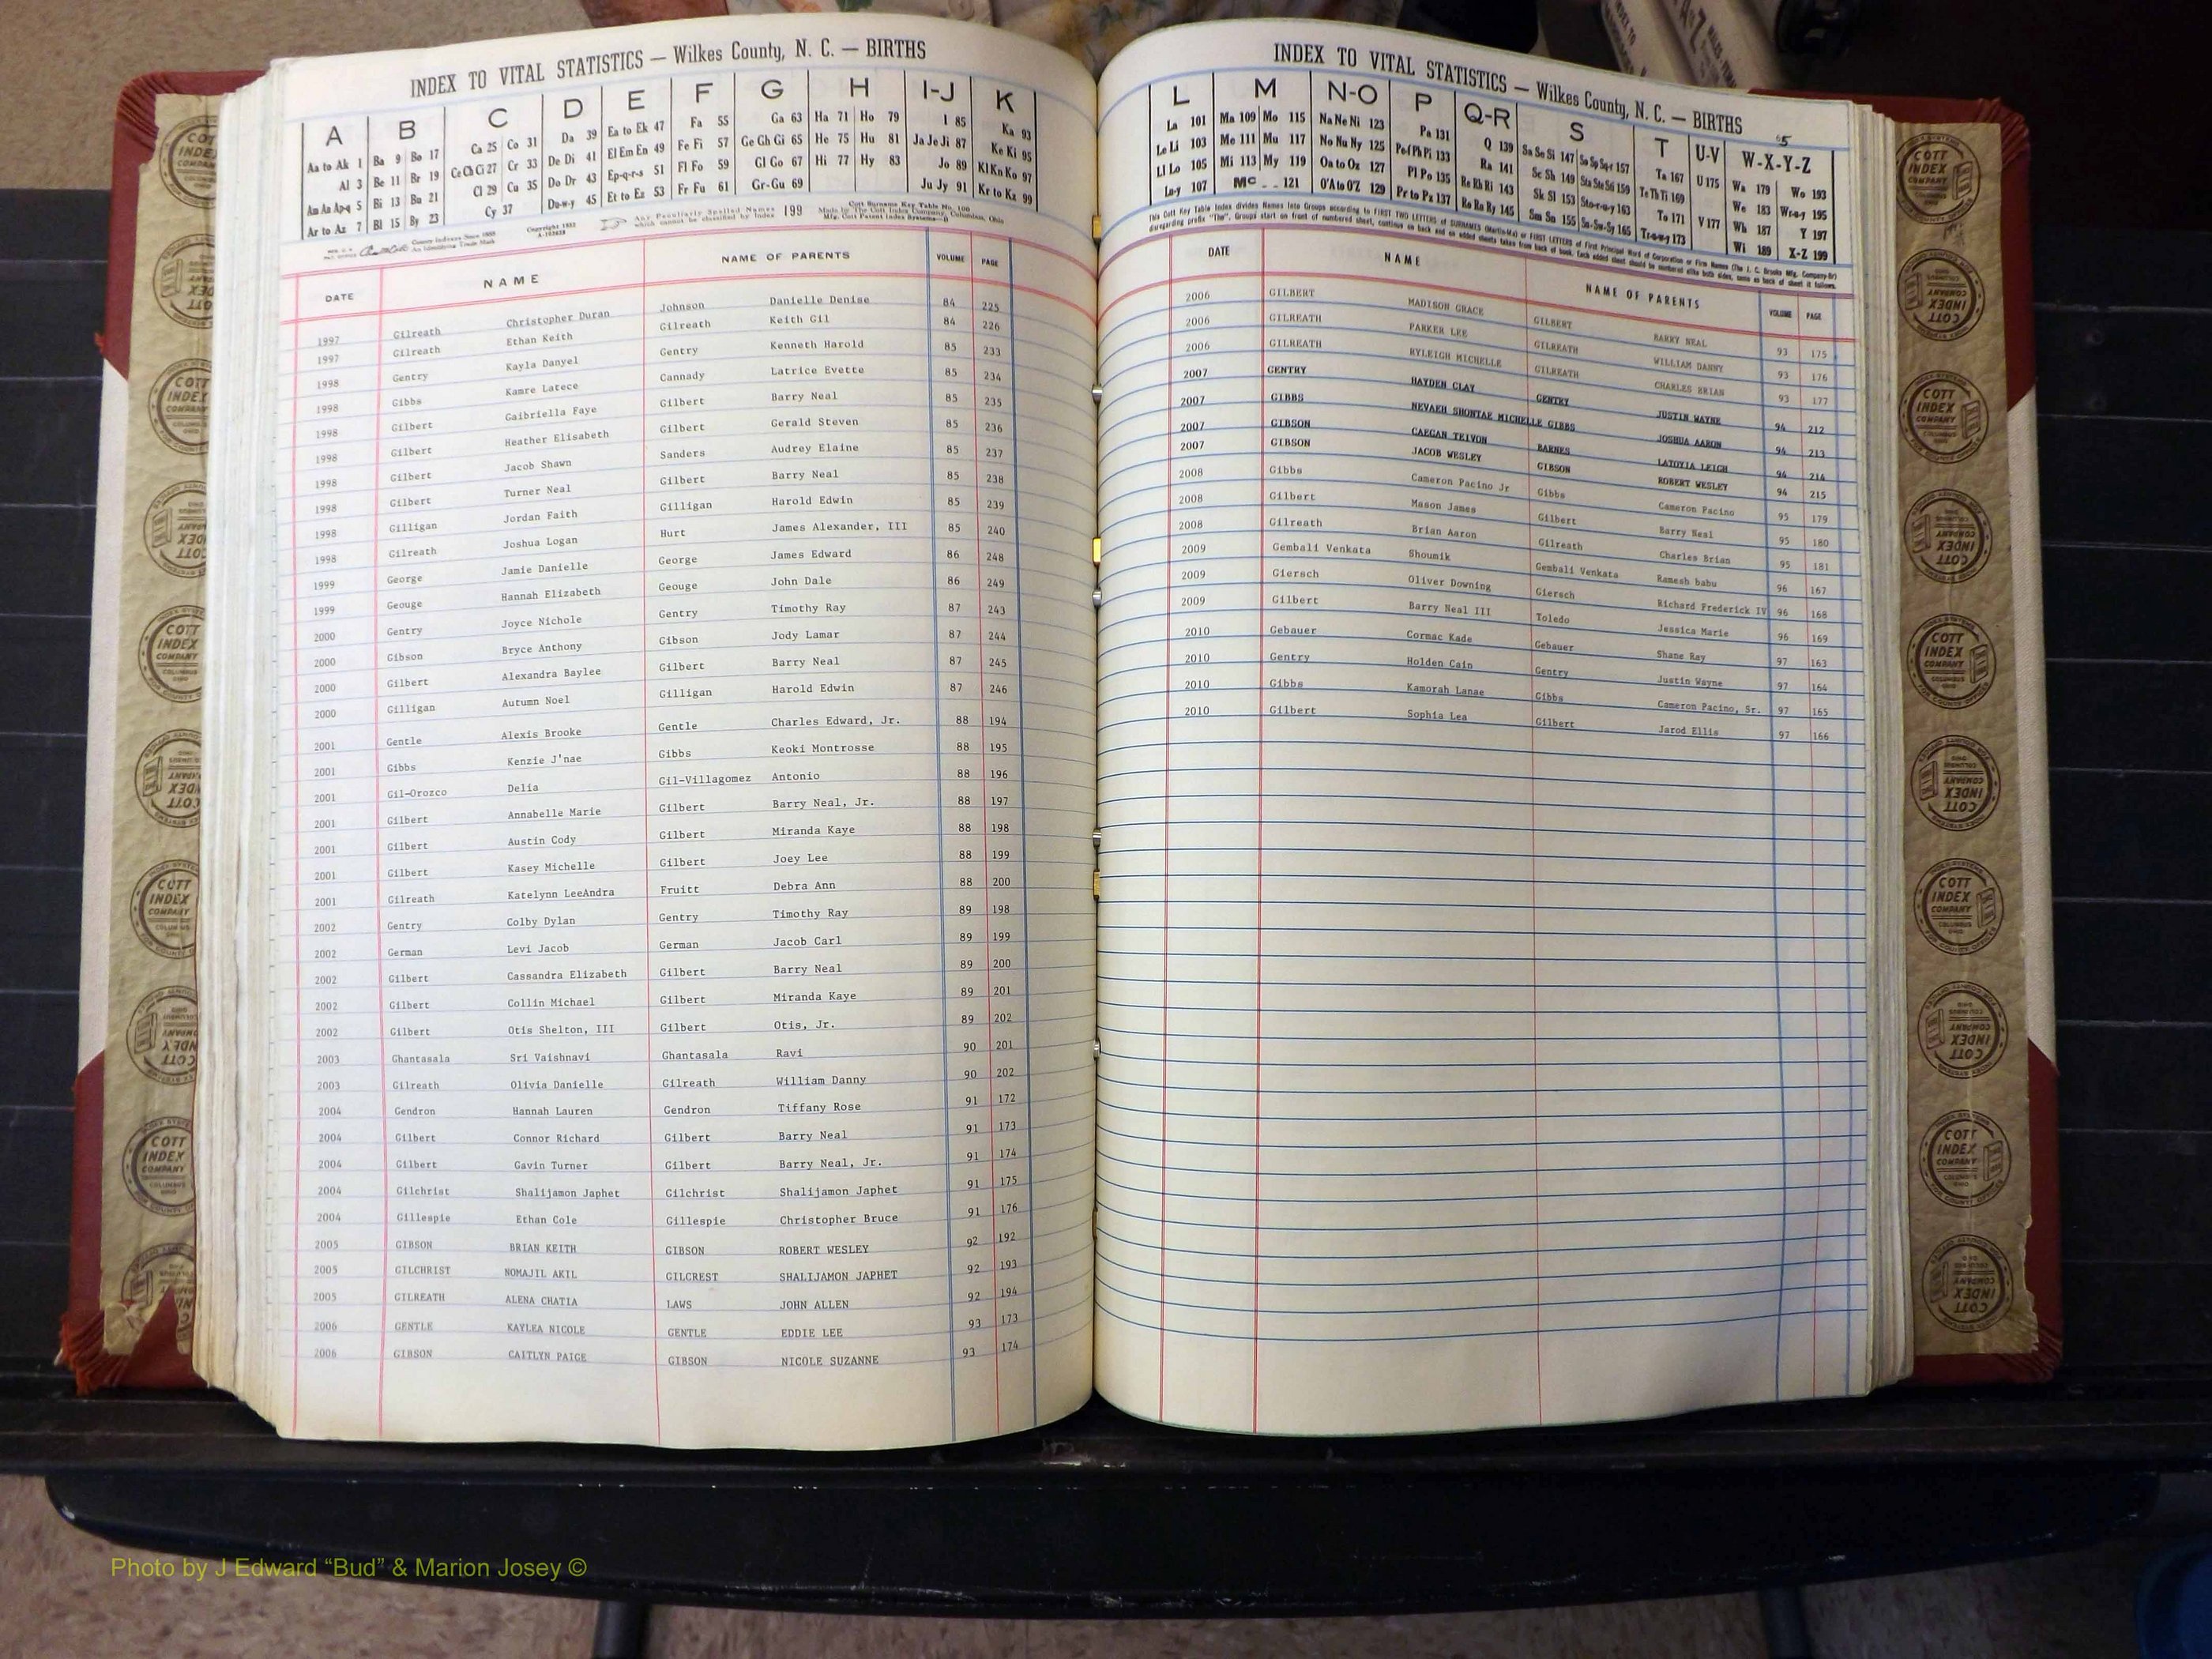 INDEX TO VITAL STATISTICS — Wilkes County, N. C. — BIRTHS
A B C D E F G H I-J K
Aa to Ak 1 Ba 9 Bo 17 Ca 25 Co 31 Da 39 Ea to Ek 47 Fa 55 Ga 63 Ha 71 Ho 79 I 85 Ka 93
Al 3 Be 11 Br 19 Ce Ch Ci 27 Cr 33 De Di 41 El Em En 49 Fe Fi 57 Ge Gh Gi 65 He 75 Hu 81 Ja Je Ji 87 Ke Ki 95
Am An Ap-q 5 Bi 13 Bu 21 Cl 29 Cu 35 Do Dr 43 Ep-q-r-s 51 Fl Fo 59 Gl Go 67 Hi 77 Hy 83 Jo 89 Kl Kn Ko 97
Ar to Az 7 Bl 15 By 23 Cy 37 Du-w-y 45 Et to Ez 53 Fr Fu 61 Gr-Gu 69 Ju Jy 91 Kr to Kz 99
County Indexers Since 1888
An Identifying Trade Mark
Any Peculiarly Spelled Names which cannot be classified by Index 199
Cott Surname Key Table No. 100
Made by The Cott Index Company, Columbus, Ohio
DATE NAME NAME OF PARENTS VOLUME PAGE
1997 Gilreath Christopher Duran Johnson Danielle Denise 84 225
1997 Gilreath Ethan Keith Gilreath Keith Gil 84 226
1998 Gentry Kayla Danyel Gentry Kenneth Harold 85 233
1998 Gibbs Kamre Latece Cannady Latrice Evette 85 234
1998 Gilbert Gaibriella Faye Gilbert Barry Neal 85 235
1998 Gilbert Heather Elisabeth Gilbert Gerald Steven 85 236
1998 Gilbert Jacob Shawn Sanders Audrey Elaine 85 237
1998 Gilbert Turner Neal Gilbert Barry Neal 85 238
1998 Gilligan Jordan Faith Gilligan Harold Edwin 85 239
1998 Gilreath Joshua Logan Hurt James Alexander, III 85 240
1999 George Jamie Danielle George James Edward 86 248
1999 Geouge Hannah Elizabeth Geouge John Dale 86 249
2000 Gentry Joyce Nichole Gentry Timothy Ray 87 243
2000 Gibson Bryce Anthony Gibson Jody Lamar 87 244
2000 Gilbert Alexandra Baylee Gilbert Barry Neal 87 245
2000 Gilligan Autumn Noel Gilligan Harold Edwin 87 246
2001 Gentle Alexis Brooke Gentle Charles Edward, Jr. 88 194
2001 Gibbs Kenzie J'nae Gibbs Keoki Montrosse 88 195
2001 Gil-Orozco Delia Gil-Villagomez Antonio 88 196
2001 Gilbert Annabelle Marie Gilbert Barry Neal, Jr. 88 197
2001 Gilbert Austin Cody Gilbert Miranda Kaye 88 198
2001 Gilbert Kasey Michelle Gilbert Joey Lee 88 199
2001 Gilreath Katelynn LeeAndra Fruitt Debra Ann 88 200
2002 Gentry Colby Dylan Gentry Timothy Ray 89 198
2002 German Levi Jacob German Jacob Carl 89 199
2002 Gilbert Cassandra Elizabeth Gilbert Barry Neal 89 200
2002 Gilbert Collin Michael Gilbert Miranda Kaye 89 201
2002 Gilbert Otis Shelton, III Gilbert Otis, Jr. 89 202
2003 Ghantasala Sri Vaishnavi Ghantasala Ravi 90 201
2003 Gilreath Olivia Danielle Gilreath William Danny 90 202
2004 Gendron Hannah Lauren Gendron Tiffany Rose 91 172
2004 Gilbert Connor Richard Gilbert Barry Neal 91 173
2004 Gilbert Gavin Turner Gilbert Barry Neal, Jr. 91 174
2004 Gilchrist Shalijamon Japhet Gilchrist Shalijamon Japhet 91 175
2004 Gillespie Ethan Cole Gillespie Christopher Bruce 91 176
2005 GIBSON BRIAN KEITH GIBSON ROBERT WESLEY 92 192
2005 GILCHRIST NOMAJIL AKIL GILCREST SHALIJAMON JAPHET 92 193
2005 GILREATH ALENA CHATIA LAWS JOHN ALLEN 92 194
2006 GENTLE KAYLEA NICOLE GENTLE EDDIE LEE 93 173
2006 GIBSON CAITLYN PAIGE GIBSON NICOLE SUZANNE 93 174
INDEX TO VITAL STATISTICS — Wilkes County, N. C. — BIRTHS
65
L M N-O P Q-R S T U-V W-X-Y-Z
La 101 Ma 109 Mo 115 Na Ne Ni 123 Pa 131 Q 139 Sa Se Si 147 So Sp Sq-r 157 Ta 167 U 175 Wa 179 Wo 193
Le Li 103 Me 111 Mu 117 No Nu Ny 125 Pe-f Ph Pi 133 Ra 141 Sc Sh 149 Sta Ste Sti 159 Te Th Ti 169 We 183 Wr-u-y 195
Ll Lo 105 Mi 113 My 119 Oa to Oz 127 Pl Po 135 Re Rh Ri 143 Sk Sl 153 Sto-r-u-y 163 To 171 V 177 Wh 187 Y 197
Lu-y 107 Mc 121 O'A to O'Z 129 Pr to Pz 137 Ro Ru Ry 145 Sm Sn 155 Su-Sw-Sy 165 Tr-u-w-y 173 Wi 189 X-Z 199
DATE NAME NAME OF PARENTS VOLUME PAGE
2006 GILBERT MADISON GRACE GILBERT BARRY NEAL 93 175
2006 GILREATH PARKER LEE GILREATH WILLIAM DANNY 93 176
2006 GILREATH RYLEIGH MICHELLE GILREATH CHARLES BRIAN 93 177
2007 GENTRY HAYDEN CLAY GENTRY JUSTIN WAYNE 94 212
2007 GIBBS NEVAEH SHONTAE MICHELLE GIBBS JOSHUA AARON 94 213
2007 GIBSON CAEGAN TEIVON BARNES LATOYIA LEIGH 94 214
2007 GIBSON JACOB WESLEY GIBSON ROBERT WESLEY 94 215
2008 Gibbs Cameron Pacino Jr Gibbs Cameron Pacino 95 179
2008 Gilbert Mason James Gilbert Barry Neal 95 180
2008 Gilreath Brian Aaron Gilreath Charles Brian 95 181
2009 Gembali Venkata Shoumik Gembali Venkata Ramesh babu 96 167
2009 Giersch Oliver Downing Giersch Richard Frederick IV 96 168
2009 Gilbert Barry Neal III Toledo Jessica Marie 96 169
2010 Gebauer Cormac Kade Gebauer Shane Ray 97 163
2010 Gentry Holden Cain Gentry Justin Wayne 97 164
2010 Gibbs Kamorah Lanae Gibbs Cameron Pacino, Sr. 97 165
2010 Gilbert Sophia Lea Gilbert Jarod Ellis 97 166
COTT INDEX COMPANY COLUMBUS OHIO
Photo by J Edward “Bud” & Marion Josey ©